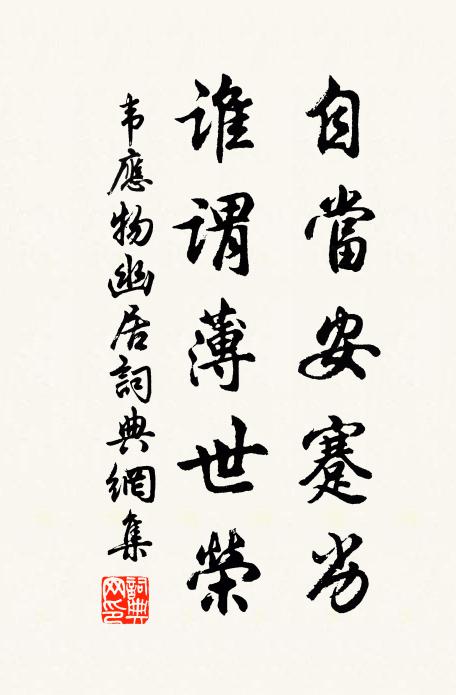 自當安蹇劣
誰謂薄世榮
韦應物幽居詞典網集
詞典网印